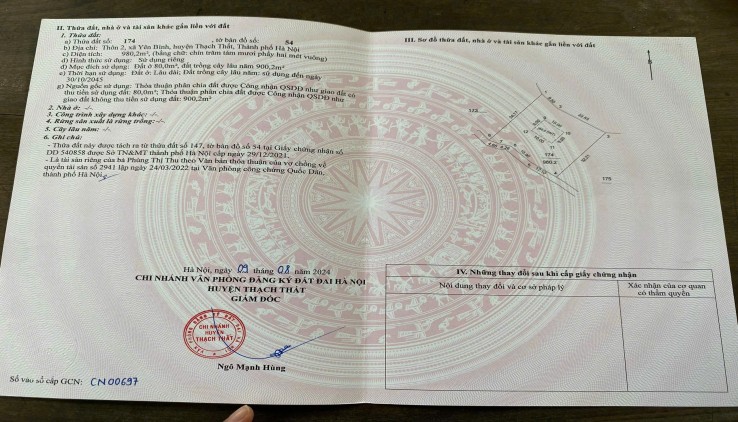 II. Thửa đất, nhà ở và tài sản khác gắn liền với đất
1. Thửa đất:
a) Thửa đất số: 174 , tờ bản đồ số: 54
b) Địa chỉ: Thôn 2, xã Yên Bình, huyện Thạch Thất, Thành phố Hà Nội
c) Diện tích: 980,2m², (bằng chữ: chín trăm tám mươi phẩy hai mét vuông)
d) Hình thức sử dụng: Sử dụng riêng
đ) Mục đích sử dụng: Đất ở 80,0m², đất trồng cây lâu năm 900,2m²
e) Thời hạn sử dụng: Đất ở: Lâu dài; Đất trồng cây lâu năm: sử dụng đến ngày
30/10/2045
g) Nguồn gốc sử dụng: Thỏa thuận phân chia đất được Công nhận QSDĐ như giao đất có
thu tiền sử dụng đất: 80,0m²; Thỏa thuận phân chia đất được Công nhận QSDĐ như
giao đất không thu tiền sử dụng đất: 900,2m²
2. Nhà ở: -/-
3. Công trình xây dựng khác: -/-
4. Rừng sản xuất là rừng trồng: -/-
5. Cây lâu năm: -/-
6. Ghi chú:
- Thửa đất này được tách ra từ thửa đất số 147, tờ bản đồ số 54 tại Giấy chứng nhận số
DD 540858 được Sở TN&MT thành phố Hà Nội cấp ngày 29/12/2021.
- Là tài sản riêng của bà Phùng Thị Thu theo Văn bản thỏa thuận của vợ chồng về
quyền tài sản số 2941 lập ngày 24/03/2022 tại Văn phòng công chứng Quốc Dân,
thành phố Hà Nội.
Hà Nội, ngày 09 tháng 08 năm 2024
CHI NHÁNH VĂN PHÒNG ĐĂNG KÝ ĐẤT ĐAI HÀ NỘI
HUYỆN THẠCH THẤT
GIÁM ĐỐC
CHI NHÁNH
HUYỆN
THẠCH THẤT
Ngô Mạnh Hùng
Số vào sổ cấp GCN: CN00697
III. Sơ đồ thửa đất, nhà ở và tài sản khác gắn liền với đất
B
173
174
980.2
175
IV. Những thay đổi sau khi cấp giấy chứng nhận
Nội dung thay đổi và cơ sở pháp lý
Xác nhận của cơ quan
có thẩm quyền